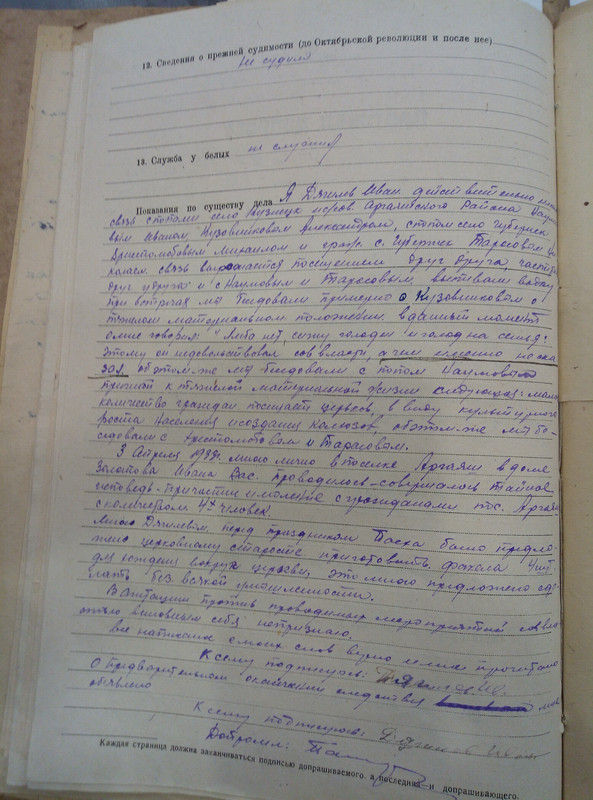 12. Сведения о прежней судимости (до Октябрьской революции и после нее)
не судился
13. Служба у белых не служил
Показания по существу дела Я Иван действительно имел
связь с попами село Кузнецк Аргаяшского Района
Иваном, Кузовниковым Александром, с попом село Губернск
Михаилом и с. Губернск Тарасовым
связь выражается посещением друг друга, часто
друг у друга и с Наумовым и Тарасовым, выпивали водку
при встречах мы беседовали примерно с Кузовниковым о
тяжелом материальном положении в данный момент
он мне говорил: "Хлеба нет, сижу голоден и голодна семья"
этому он недовольствовал соввласти, а чем именно не ска-
зал, об этом же мы беседовали с попом Наумовым
причиной к тяжелой материальной жизни следующая: малое
количество граждан посещает церковь, в виду культурного
роста населения и создания колхозов об этом-же мы бе-
седовали с и Тарасовым.
3 Апреля мною лично в поселке Аргаяш в доме
Золотова Ивана Вас. проводилось-совершалось тайное
исповедь-причастие и моление с гражданами пос. Аргаяш
с количеством 4х человек.
Мною перед праздником Пасха было предло-
жено церковному старосте приготовить факела 4 шт.
для хождения вокруг церкви, это мною предложено сде-
лать без всякой умышленности.
В агитации против проводимых мероприятий соввла-
стью виновным себя не признаю.
Все написано с моих слов верно и мне прочитано
К сему подпишусь:
О предварительном окончании следствия мне
объявлено
К сему подпишусь:
Допросил:
Каждая страница должна заканчиваться подписью допрашиваемого, а последняя и допрашивающего.